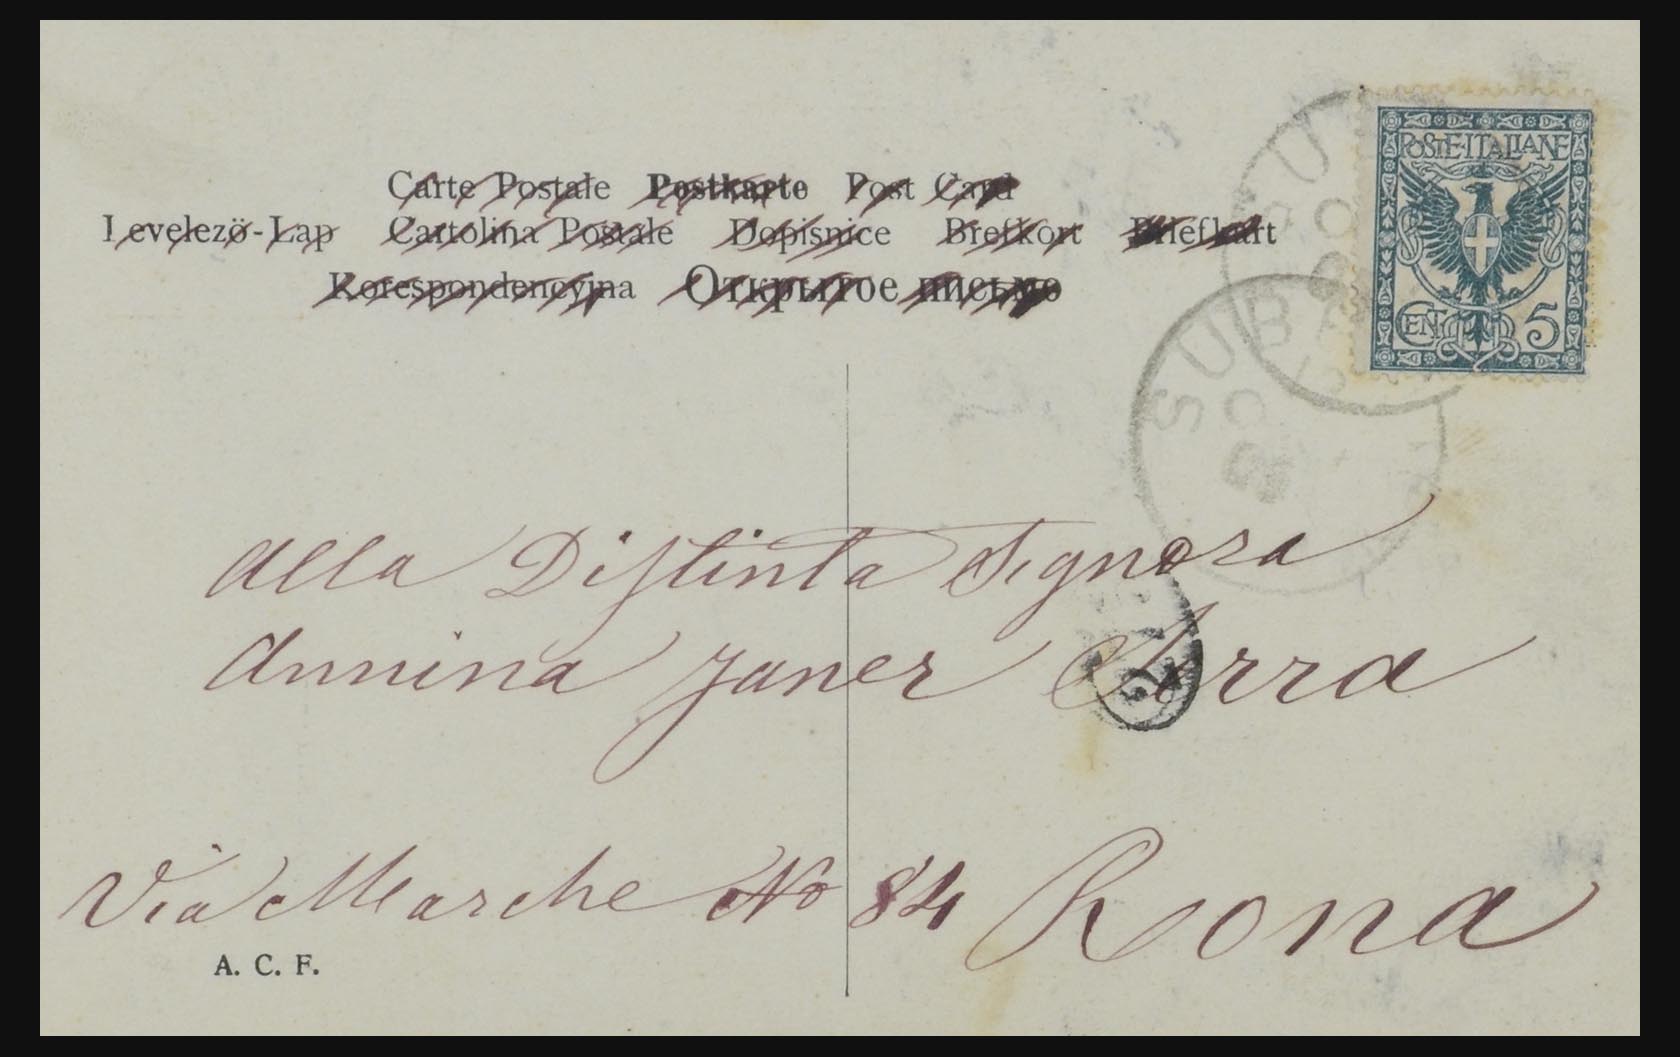 Carte Postale Postkarte Post Card
Levelezö-Lap Cartolina Postale Dopisnice Brefkort Briefkart
Korespondencyjna Открытое письмо
POSTE·ITALIANE
CENT. 5
SUB
Alla Distinta Signora
Annina Janer Serra
Via Marche No 84 Roma
A. C. F.